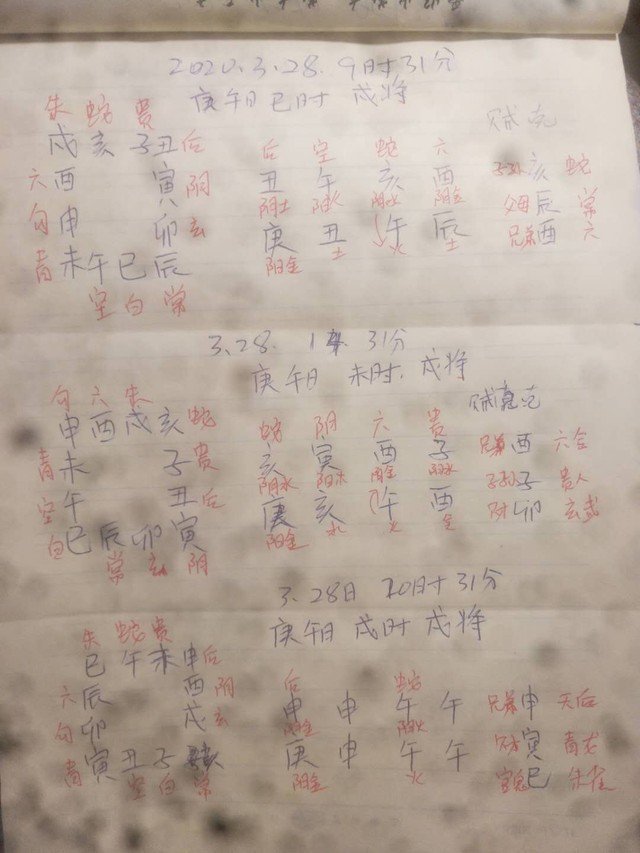 2020.3.28. 9时31分
庚午日 巳时 戌将
朱 蛇 贵 贼克
戌 亥 子 丑 后 后 空 蛇 六
六 酉 寅 阴 丑 午 亥 酉 子孙 亥 蛇
阴土 阳火 阴水 阴金
勾 申 卯 玄 庚 丑 午 辰 父母 辰 常
青 未 午 巳 辰 阳金 土 火 土 兄弟 酉 六
空 白 常
3.28. 31分
庚午日 未时. 戌将
勾 六 朱 贼克
申 酉 戌 亥 蛇 蛇 阴 六 贵
青 未 子 贵 亥 寅 酉 子 兄弟 酉 六合
阴水 阳木 阴金 阳水
空 午 丑 后 庚 亥 午 酉 子孙 子 贵人
白 巳 辰 卯 寅 阳金 水 火 金 财 卯 玄武
常 玄 阴
3.28日 20时31分
庚午日 戌时 戌将
朱 蛇 贵
巳 午 未 申 后 后 蛇
六 辰 酉 阴 申 申 午 午 兄弟 申 天后
勾 卯 戌 玄 阳金 阳火
庚 申 午 午 财 寅 青龙
青 寅 丑 子 亥 阳金 火 官鬼 巳 朱雀
空 白 常